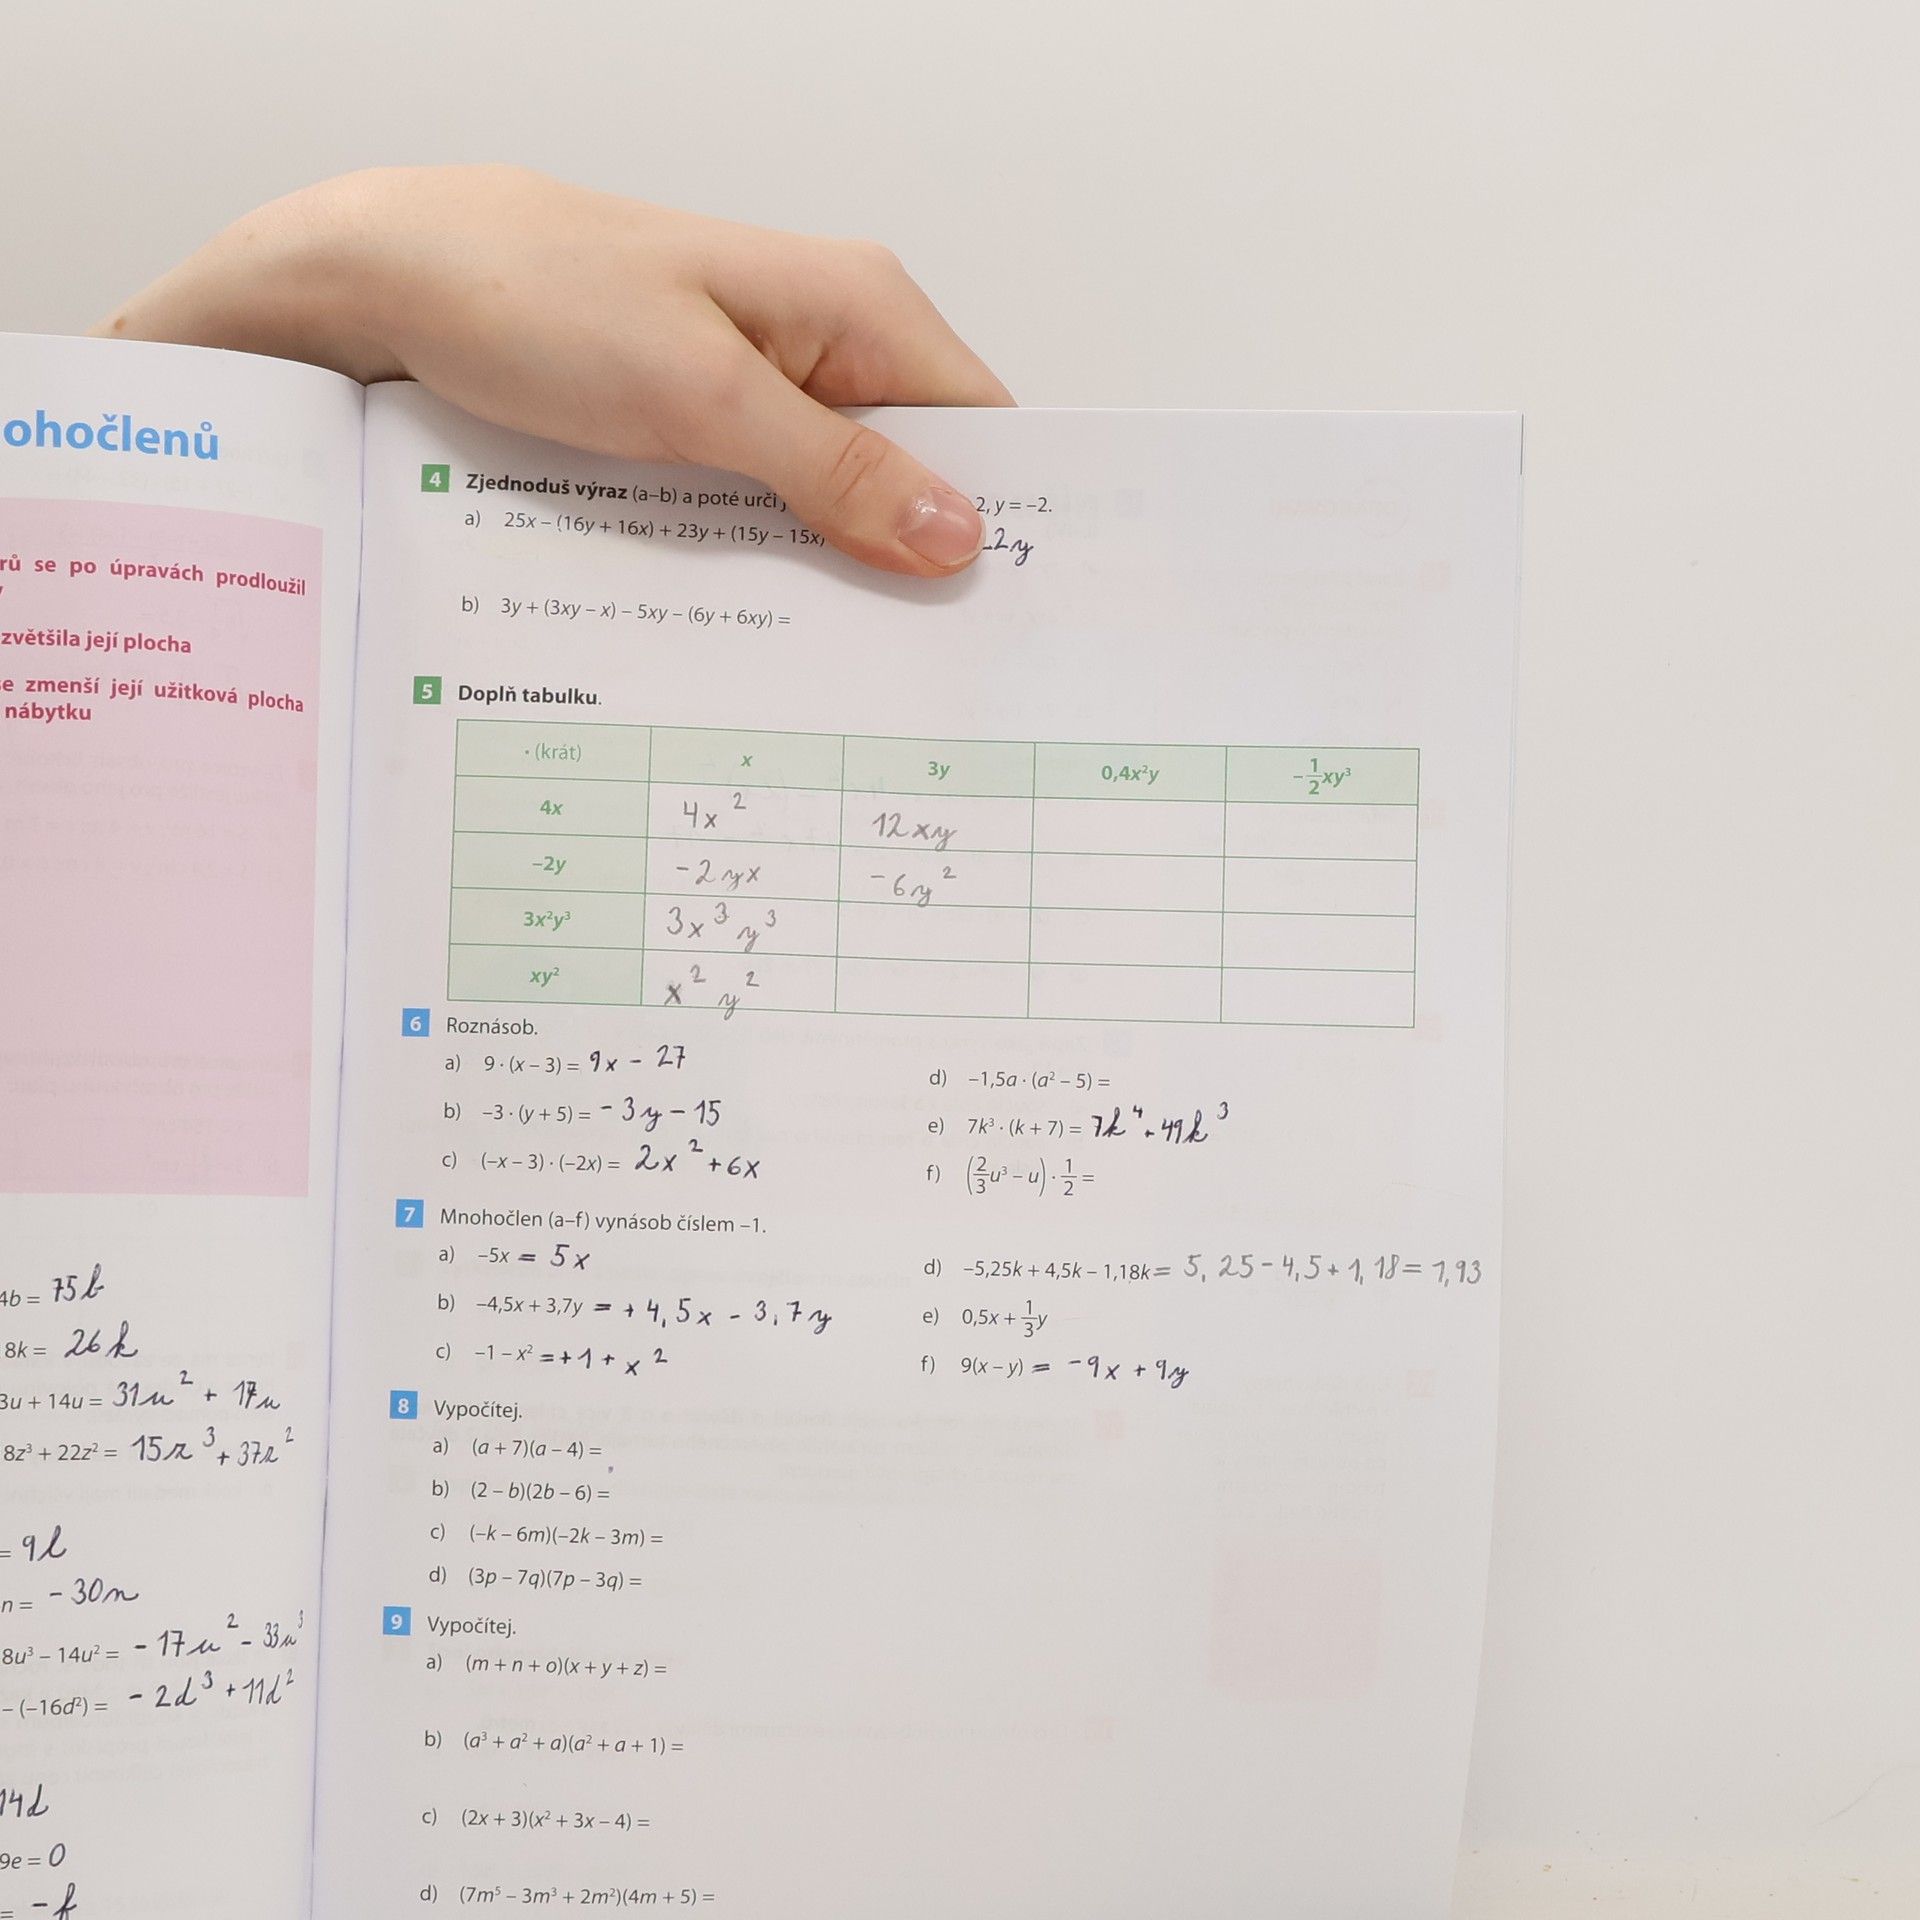 ohočlenů
rů se po úpravách prodloužil
zvětšila její plocha
se zmenší její užitková plocha
nábytku
4b = 75b
8k = 26k
3u + 14u = 31u² + 17u
8z³ + 22z² = 15z³ + 37z²
= 9l
n = - 30n
8u³ – 14u² = - 17u² - 33u³
– (–16d²) = - 2d³ + 11d²
14d
9e = 0
= - f
4 Zjednoduš výraz (a–b) a poté urči
2, y = –2.
a) 25x – (16y + 16x) + 23y + (15y – 15x)
2y
b) 3y + (3xy – x) – 5xy – (6y + 6xy) =
5 Doplň tabulku.
· (krát) x 3y 0,4x²y –1/2xy³
4x 4x² 12xy
–2y -2yx -6y²
3x²y³ 3x³y³
xy² x²y²
6 Roznásob.
a) 9 · (x – 3) = 9x - 27
b) –3 · (y + 5) = - 3y - 15
c) (–x – 3) · (–2x) = 2x² + 6x
d) –1,5a · (a² – 5) =
e) 7k³ · (k + 7) = 7k⁴ + 49k³
f) (2/3u³ – u) · 1/2 =
7 Mnohočlen (a–f) vynásob číslem –1.
a) –5x = 5x
b) –4,5x + 3,7y = + 4,5x - 3,7y
c) –1 – x² = +1 + x²
d) –5,25k + 4,5k – 1,18k = 5,25 - 4,5 + 1,18 = 1,93
e) 0,5x + 1/3y
f) 9(x – y) = -9x + 9y
8 Vypočítej.
a) (a + 7)(a – 4) =
b) (2 – b)(2b – 6) =
c) (–k – 6m)(–2k – 3m) =
d) (3p – 7q)(7p – 3q) =
9 Vypočítej.
a) (m + n + o)(x + y + z) =
b) (a³ + a² + a)(a² + a + 1) =
c) (2x + 3)(x² + 3x – 4) =
d) (7m⁵ – 3m³ + 2m²)(4m + 5) =